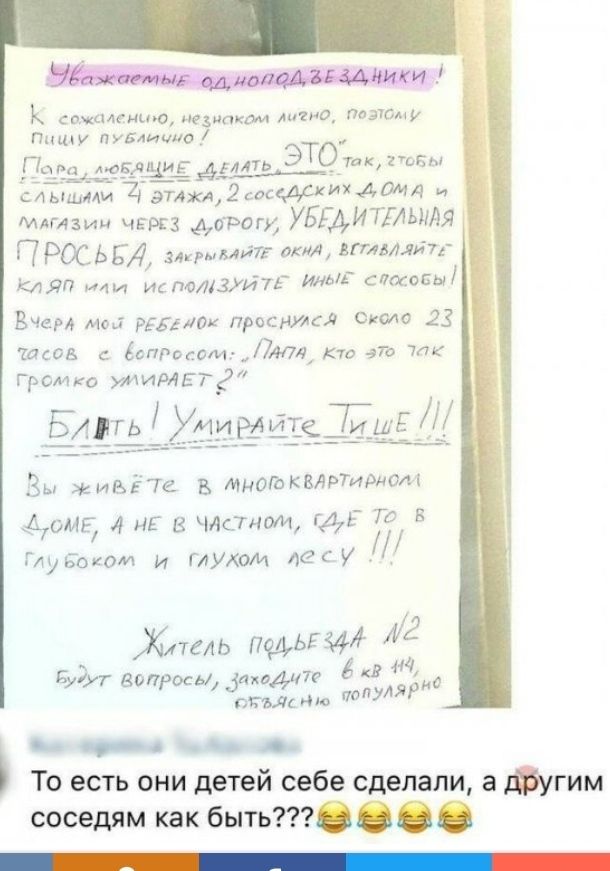 Уважаемые одноподъездники!
К сожалению, незнаком лично, поэтому
пишу публично!
Пара, любящие делать "ЭТО" так, чтобы
слышали 4 этажа, 2 соседских дома и
магазин через дорогу, УБЕДИТЕЛЬНАЯ
ПРОСЬБА, закрывайте окна, вставляйте
кляп или используйте иные способы!
Вчера мой ребенок проснулся около 23
часов с вопросом: „Папа, кто это так
громко умирает?"
Блять! Умирайте Тише!!!
Вы живёте в многоквартирном
доме, а не в частном, где то в
глубоком и глухом лесу!!!
Житель подьезда №2
Будут вопросы, заходите в кв 114,
объясню популярно
То есть они детей себе сделали, а другим
соседям как быть???😂😂😂😂